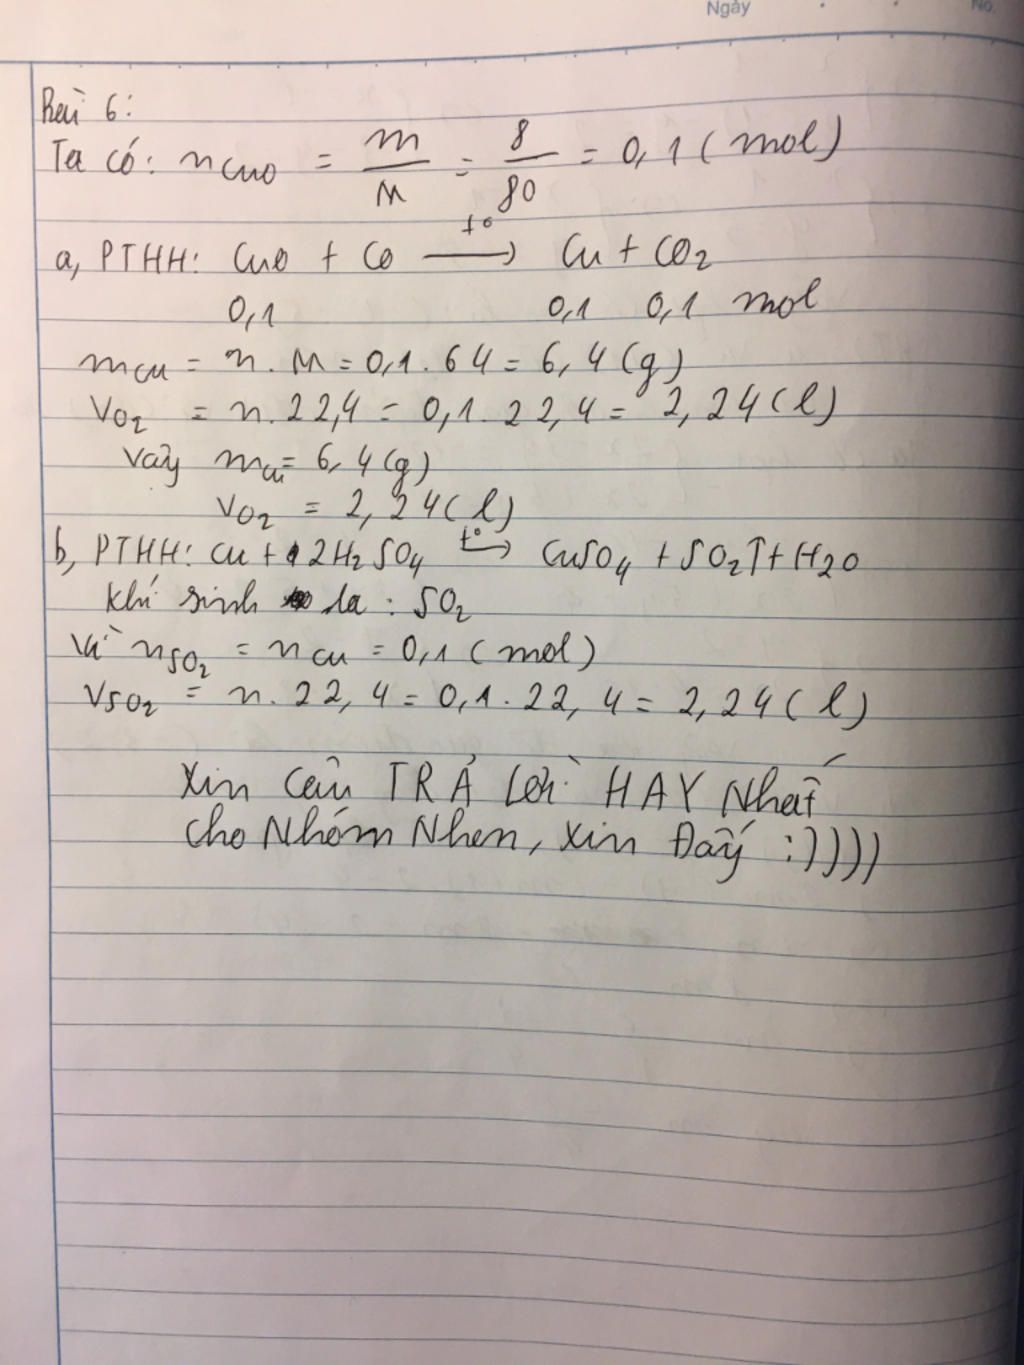 Ngày No.
Bài 6:
Ta có: nCuO = m/M = 8/80 = 0,1 (mol)
a, PTHH: CuO + CO —t°→ Cu + CO2
0,1 0,1 0,1 mol
mCu = n.M = 0,1.64 = 6,4 (g)
VO2 = n.22,4 = 0,1.22,4 = 2,24 (l)
Vay mCu = 6,4 (g)
VO2 = 2,24 (l)
b, PTHH: Cu + 2H2SO4 —t°→ CuSO4 + SO2↑ + H2O
khí sinh la : SO2
Vì nSO2 = nCu = 0,1 (mol)
VSO2 = n.22,4 = 0,1.22,4 = 2,24 (l)
Xin Câu TRẢ Lời HAY Nhất
Cho Nhóm Nhen, Xin Đấy :))))